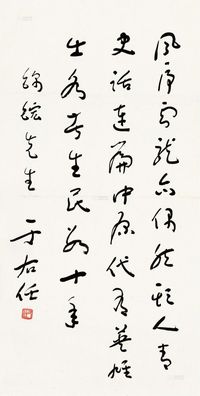 風虎雲龍亦偶然欺人青
史話連篇中原代有英雄
出各苦生民數十年
先生
于右任